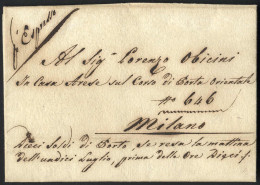 p Espresso
Al Sig.r Lorenzo Obicini
in Casa Arese sul Corso di Porta Orientale
No 646
Milano
Dieci Soldi di Porto, se resa la mattina
dell'undici Luglio, prima delle Ore Dieci